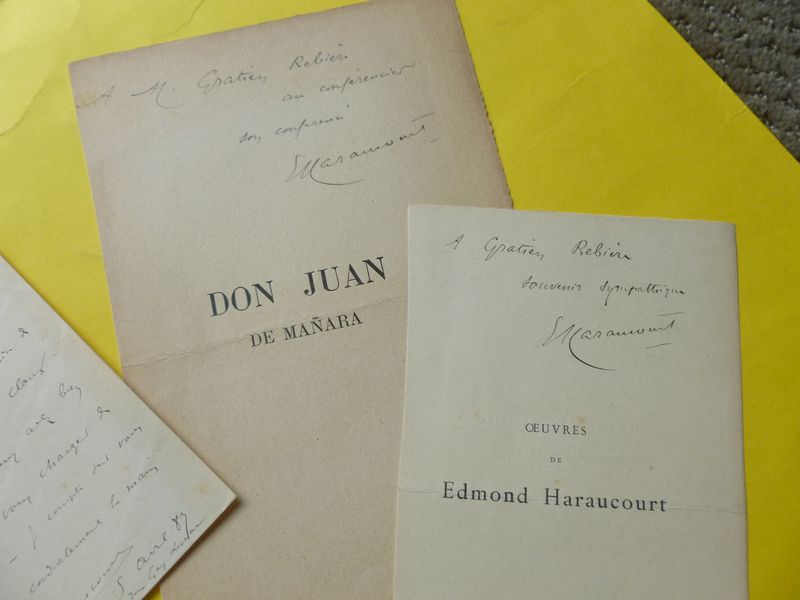 A M. Gratien Rebière
au conférencier
son conférencié
EHaraucourt
DON JUAN
DE MAÑARA
A Gratien Rebière
souvenir sympathique
EHaraucourt
ŒUVRES
DE
Edmond Haraucourt
de
bien
vous charger de
- Je compte sur vous
cordialement la main
5 avril 89